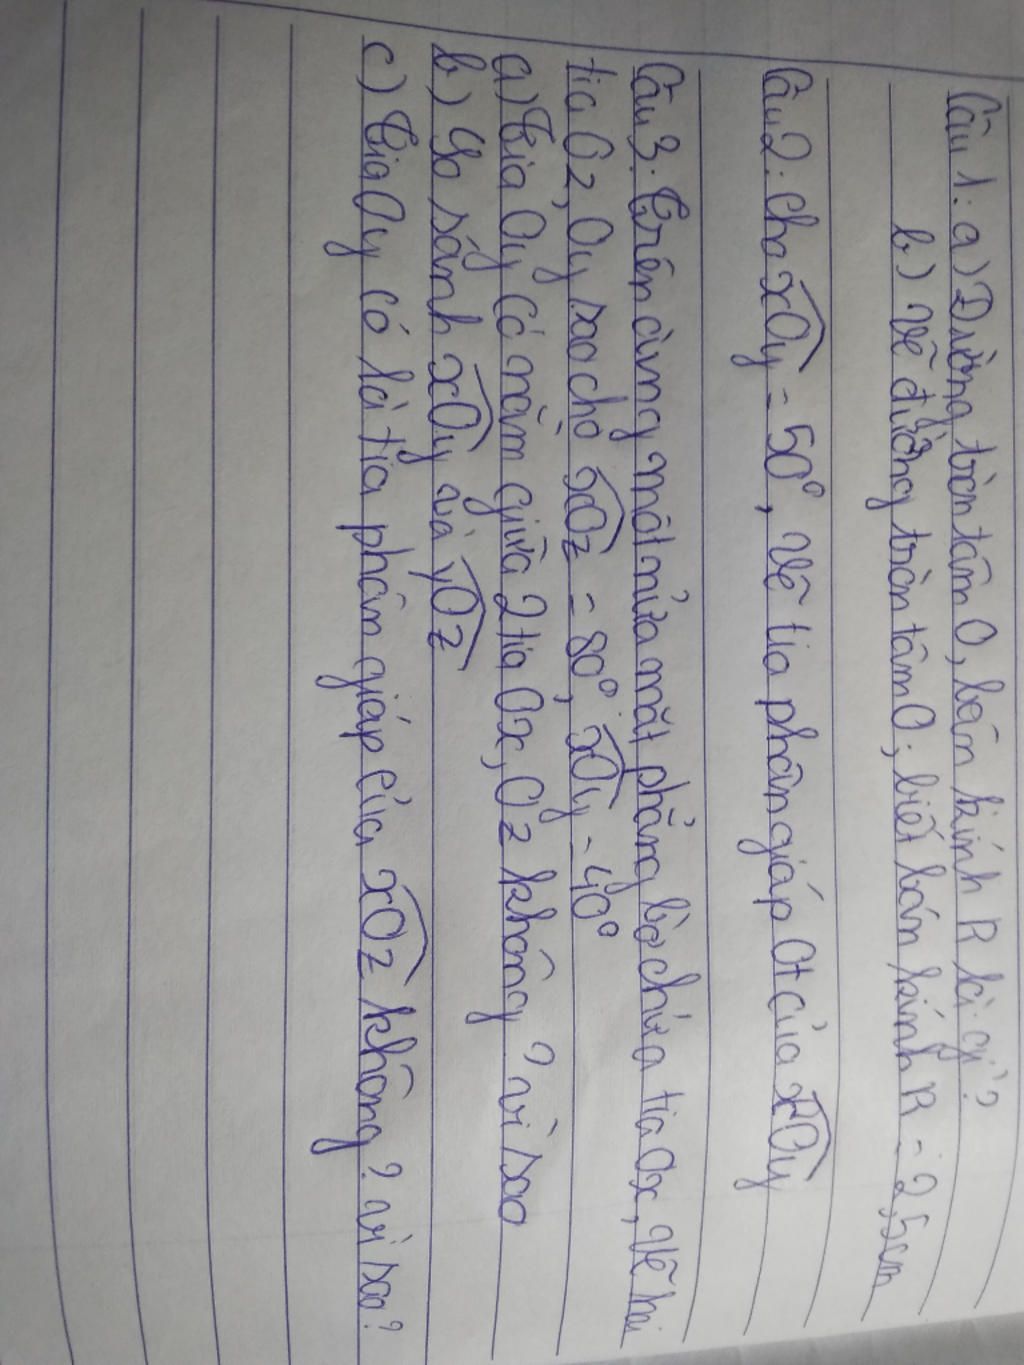 Câu 1: a) Đường tròn tâm O, bán kính R là gì?
b) Vẽ đường tròn tâm O, biết bán kính R = 2,5cm
Câu 2: cho xOy = 50°, vẽ tia phân giáp Ot của xOy
Câu 3: Trên cùng một nửa mặt phẳng bờ chứa tia Ox, vẽ hai
tia Oz, Oy sao cho xOz = 80°, xOy = 40°
a) Tia Oy có nằm giữa 2 tia Ox, Oz không? vì sao
b) So sánh xOy và yOz
c) Tia Oy có là tia phân giáp của xOz không? vì sao?